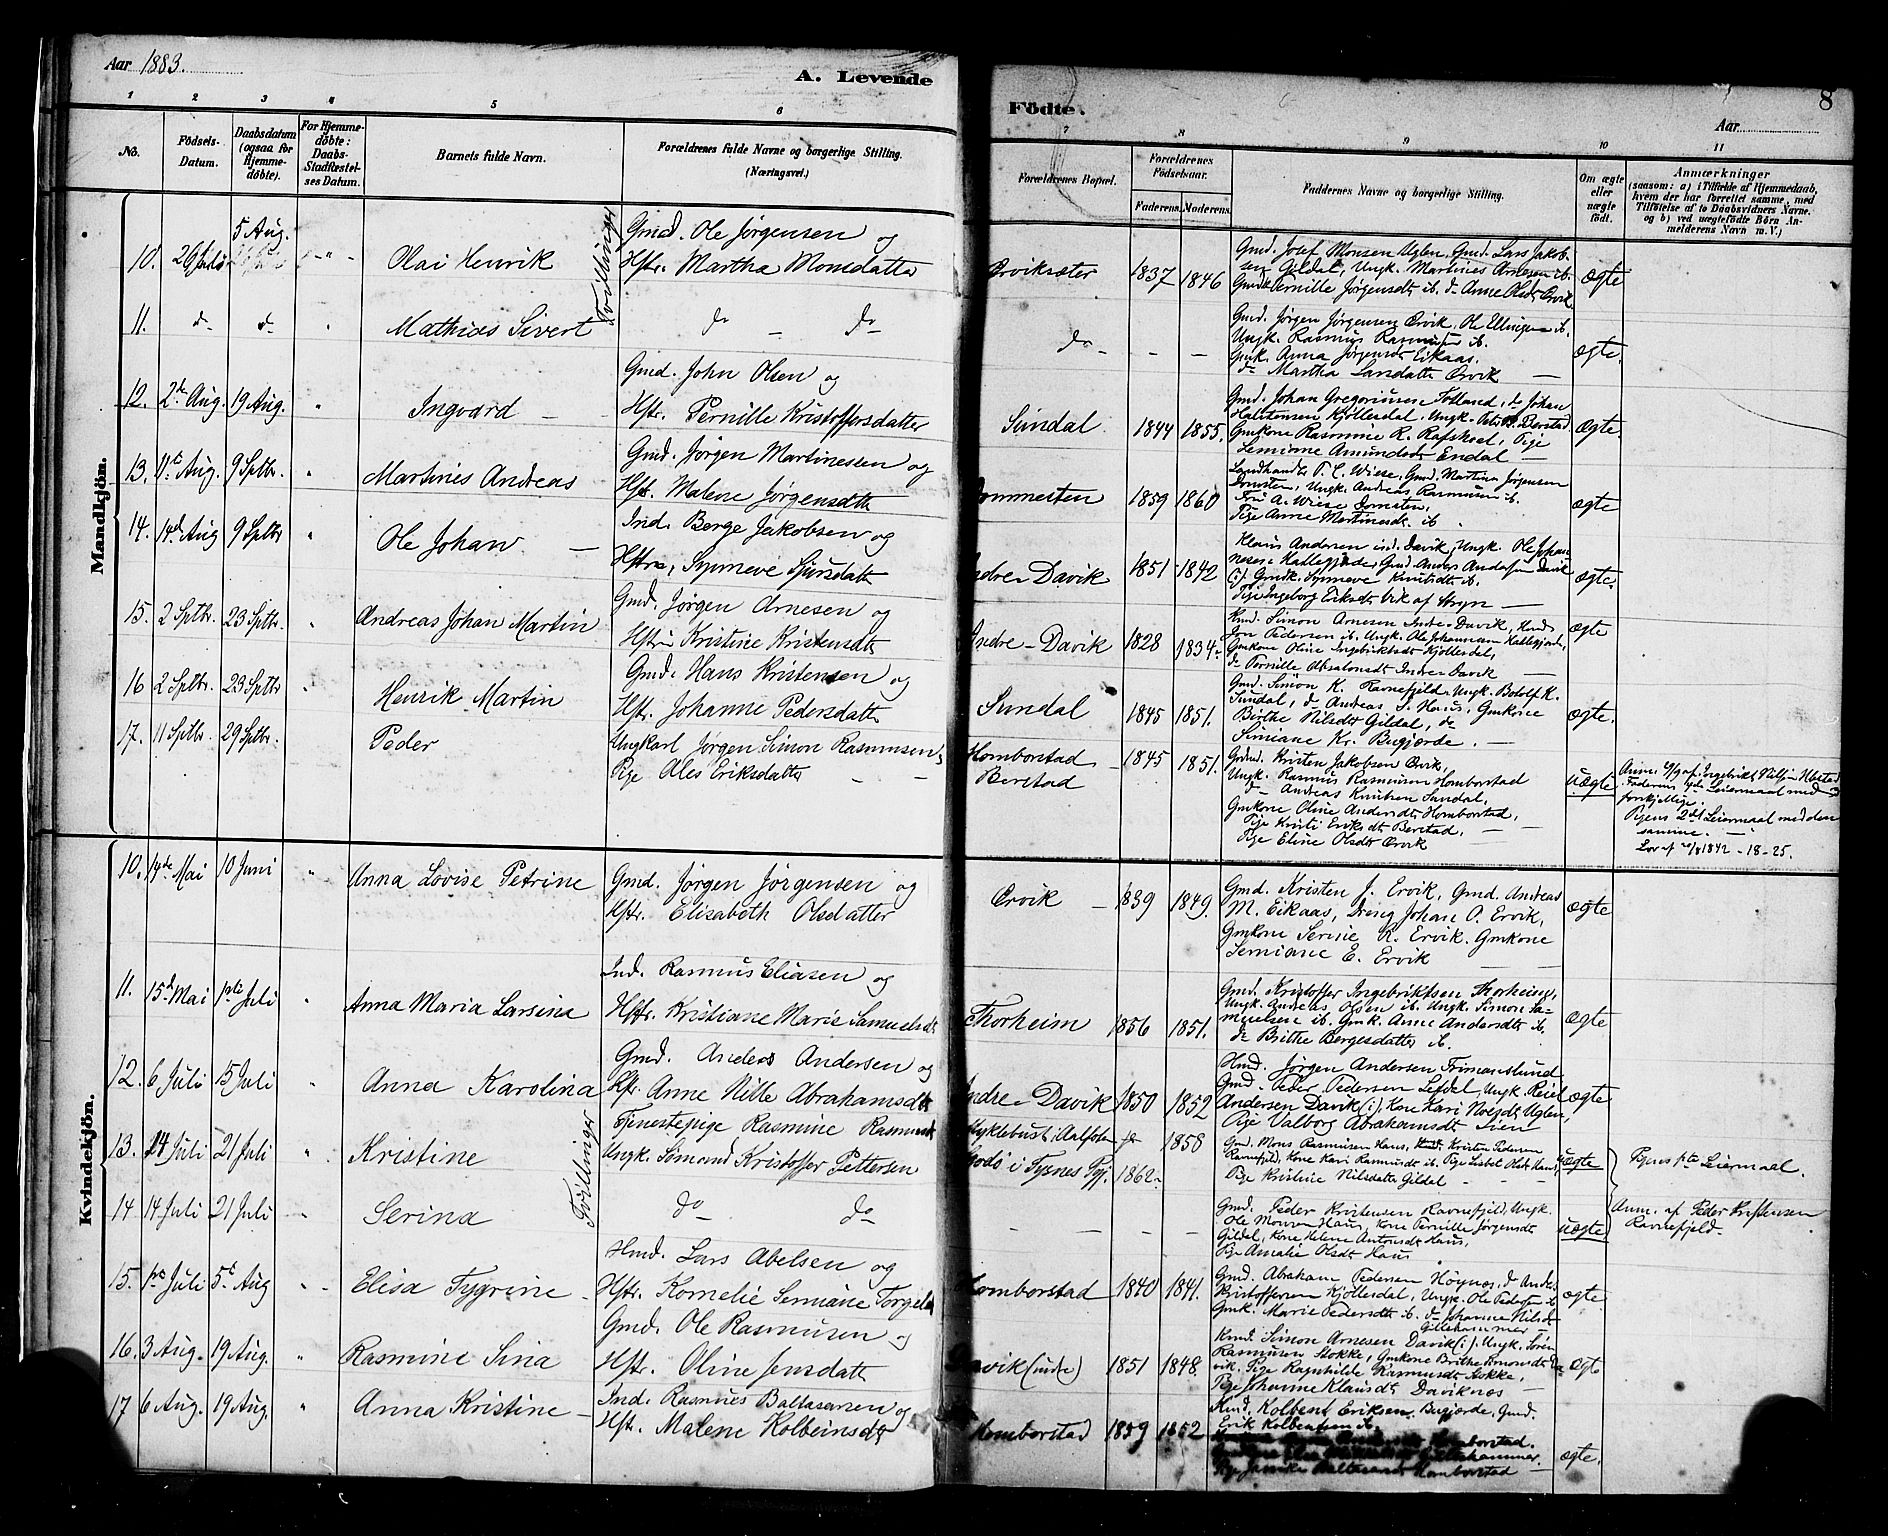 Aar 1883.
A. Levende
Födte.
8
Aar
1 2 3 4 5 6 7 8 9 10 11
No.
Födsels-Datum.
Daabsdatum (ogsaa for Hjemme-döbte).
For Hjemme-döbte: Daabs-Stadfæstel-ses Datum.
Barnets fulde Navn.
Forældrenes fulde Navne og borgerlige Stilling. (Næringsvei.)
Forældrenes Bopæl.
Forældrenes Födselsaar.
Faderens. Moderens.
Faddernes Navne og borgerlige Stilling.
Om ægte eller uægte födt.
Anmærkninger
(saasom: a) i Tilfælde af Hjemmedaab,
hvem der har forrettet samme, med
Tilföielse af to Daabsvidners Navne.
og b) ved uægtefödte Börn An-
melderens Navn m. V.)
Mandkjön.
10. 29 Juli 5 Aug. Olai Henrik Tvillinger
Gmd. Ole Jørgensen og
Hstr. Martha Monsdatter
Ørviksæter 1837 1846
Gmd. Josef Monsen Uglen, Gmd. Lars Jakob-
sen Gildal, Ungk. Martines Arnesen ib.
Gmdk Pernille Jørgensdt ib. do Anne Olsdt Ørvik
ægte
11. do do Mathias Sivert do do
do - -
Gmd. Jørgen Jørgensen Ørvik, Ole Ellingsen ib.
Ungk. Rasmus Rasmusen ib.
Gmk. Anna Jørgensdt Eikaas.
do Martha Larsdatter Ørvik
ægte
12. 2de Aug. 19 Aug. Ingvard
Gmd. John Olsen og
Hstr. Pernille Kristoffersdatter
Sundal 1844 1855.
Gmd. Johan Gregoriusen Totland, do Johan
Halstensen Kjøllesdal, Ungk. Peter B. Berstad
Gmkone Rasmine R. Rafskeel, Pige
Lemirne Amundsdt Endal
ægte.
13. 11te Aug. 9 Sptbr. Martines Andreas
Gmd. Jørgen Martinessen og
Hstr. Malene Jørgensdtr
Dommesten 1859 1860
Landhandler T. C. Wiese, Gmd. Martin Jørgensen
Domsten, Ungk. Andreas Rasmusen ib.
Fru A. Wiese Domsten,
Pige Anne Martinesdt. ib.
ægte
14. 14de Aug 9 Sptbr Ole Johan
Ind. Berge Jakobsen og
Hstru, Synneve Sjursdatt
Indre-Davik 1851 1842
Klaus Andersen ind. Davik, Ungk. Ole Johan-
nesen Hallegjerde, Gmd. Anders Andersen Davik
(i). Gmdk. Synneve Knutsdt ib.
Pige Ingeborg Eriksdt Vik af Stryn
ægte.
15. 2 Sptbr. 23 Sptbr. Andreas Johan Martin
Gmd. Jørgen Arnesen og
Hstru Kristine Kristensdt
Indre-Davik 1828 1834
Kmd. Simon Arnesen Indre-Davik, Husmd
Jon Pedersen ib. Ungk. Ole Johannesen Hallegjerde,
Gmkone Oline Ingebriktsdt Kjøllesdal,
do Pernille Absalonsdt Indre Davik
ægte
16 2 Sptbr. 23 Sptbr Henrik Martin
Gmd. Hans Kristensen og
Hstr. Johanne Pedersdatt
Sundal 1845 1851.
Gmd. Simon K. Ravnefjeld, Ungk. Botolf K.
Sundal, do Andreas S. Haus, Gmkone
Birthe Nilsdt Gildal, do
Simiane Kr. Bugjørde.
ægte.
17. 11 Sptbr. 29 Sptbr. Peder
Ungkarl Jørgen Simon Rasmusen,
Pige Ales Eriksdatter
Homborstad Berstad 1845 1851.
Gmd. Kristen Jakobsen Ørvik,
Ungk. Rasmus Rasmusen Homborstad
do Andreas Knutsen Sundal,
Gmkone Oline Andersdt Homborstad,
Pige Kristi Eriksdt Berstad,
Pige Eline Olsdt Ørvik
uægte
Anm. af Ingebrikt Nilsen
Faderens Leiermaal med
forskjellige.
Pigens 2det Leiermaal med den
samme.
Lov af 1842 - 18-25.
Kvindekjön.
10. 14de Mai 10 Juni Anna Lovise Petrine
Gmd. Jørgen Jørgensen og
Hstr. Elisabeth Olsdatter
Ørvik 1839 1849.
Gmd. Kristen J. Ervik, Gmd Andreas
M. Eikaas, Dreng Johan O. Ervik,
Gmkone Serine R. Ervik. Gmkone
Semiane E. Ervik
ægte
11. 15de Mai 1ste Juli Anna Maria Larsina
Ind. Rasmus Eliasen og
Hstr. Kristiane Marie Samuelsdt
Thorheim 1856 1851.
Gmd. Kristoffer Ingebriktsen Thorheim,
Ungk. Andreas Olsen ib. Ungk. Simon Sa-
muelsen ib. Gmk. Anne Andersdt ib.
do Brithe Bergesdatter ib.
ægte
12. 6 Juli 15 Juli Anna Karolina
Gmd. Anders Andersen og
Hstr. Anne Nille Abrahamsdt
Indre-Davik 1850 1852
Hmd. Jørgen Andersen Frimanslund
Gmd. Peder Pedersen Lefdal, Ungk. Reiel
Andersen Davik (i), Kone Kari Noesdt Uglen,
Pige Valborg Abrahamsdt Lien
ægte
13. 14 Juli 21 Juli Kristine Tvillinger
Tjenestepige Rasmine Rasmusdt
Ungk. Sømand Kristoffer Pettersen
Myklebust i Aalfoten 1858
Godø i Tysnes Pgj. 1862
Gmd. Mons Rasmusen Haus, Kristen Pedersen
Ravnefjeld, Kone Kari Rasmusdt ib. Pige Lisbet Olsdt Haus,
Pige Kristine Nilsdatter Gildal
uægte
Pigens 1ste Leiermaal.
14 14 Juli 21 Juli Serina do do
- - -
Gmd. Peder Kristensen Ravnefjeld, Ungk.
Ole Monsen Haus, Kone Pernille Jørgensdt
Gildal, Kone Helene Antonsdt Haus,
Pige Amalie Olsdt Haus
uægte
Anm. af Peder Kristensen
Ravnefjeld
15. 1ste Juli 5te Aug Elisa Tygrine
Hmd. Lars Abelsen og
Hstr. Kornelie Semiane Torgels
Homborstad 1840 1841.
Gmd. Abraham Pedersen Høynæs, do Anders
Kristoffersen Kjøllesdal, Ungk. Ole Pedersen ib
Gmk. Marie Pedersdt ib. do Johanne Nilsdt
Gillehammer
ægte
16. 3 Aug. 19 Aug. Rasmine Sina
Gmd. Ole Rasmusen og
Hstr. Oline Jensdatt
Davik (indre) 1851 1848.
Kmd. Simon Arnesen Davik (i). Ungk. Søren
Rasmusen Stokke, Gmkone Brithe Simonsdt Da-
vik. Pige Ragnhilde Rasmusdt Stokke,
Pige Johanne Klausdt Daviknæs
ægte
17 6 Aug. 19 Aug. Anna Kristine
Ind. Rasmus Baltasarsen og
Hstr. Malene Kolbeinsdt
Homborstad 1859 1852
Kmd. Kolbent Eriksen Bugjørde, Gmd.
Erik Kolbentsen ib.
Homborstad.
Gillehammer
Pige Baltasarsdt Homborstad
ægte.